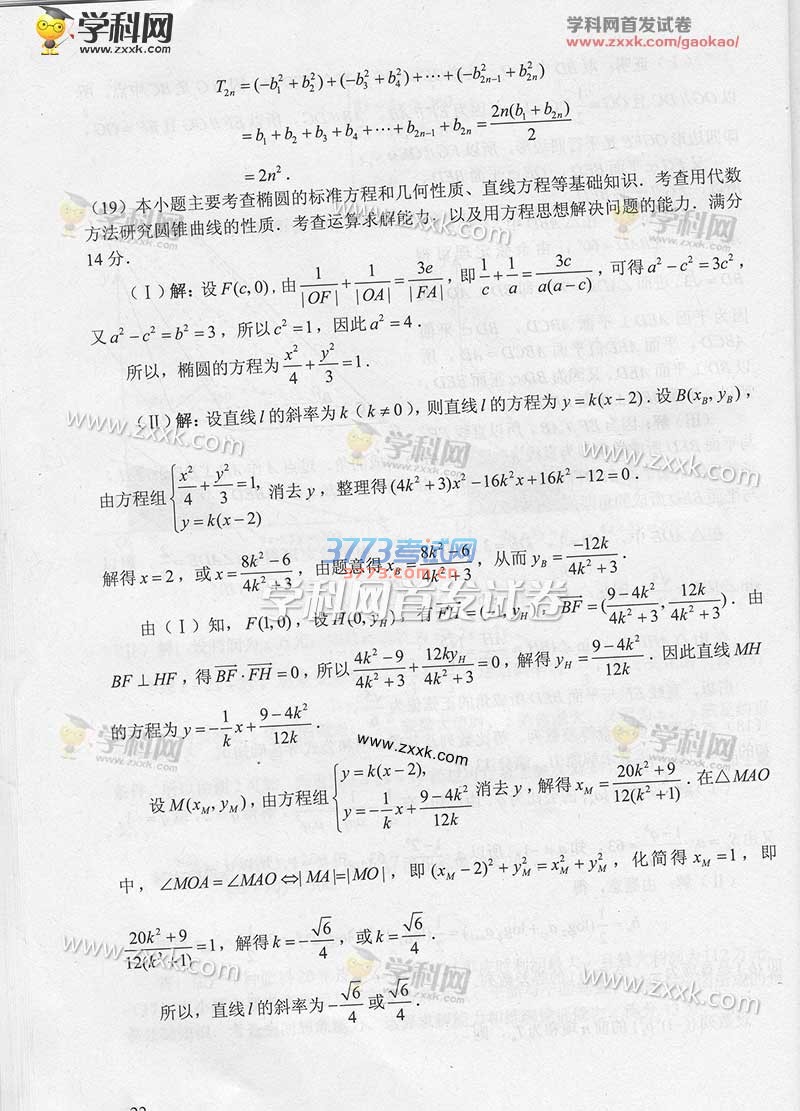 学科网
www.zxxk.com
学科网首发试卷
www.zxxk.com/gaokao/
T_{2n} = (-b_1^2 + b_2^2) + (-b_3^2 + b_4^2) + ⋯ + (-b_{2n-1}^2 + b_{2n}^2)
= b_1 + b_2 + b_3 + b_4 + ⋯ + b_{2n-1} + b_{2n} = \frac{2n(b_1 + b_{2n})}{2}
= 2n^2 .
(19) 本小题主要考查椭圆的标准方程和几何性质、直线方程等基础知识．考查用代数
方法研究圆锥曲线的性质．考查运算求解能力，以及用方程思想解决问题的能力．满分
14 分．
(Ⅰ) 解：设 F(c,0)，由 \frac{1}{|OF|} + \frac{1}{|OA|} = \frac{3e}{|FA|}，即 \frac{1}{c} + \frac{1}{a} = \frac{3c}{a(a-c)}，可得 a^2 - c^2 = 3c^2，
又 a^2 - c^2 = b^2 = 3，所以 c^2 = 1，因此 a^2 = 4．
所以，椭圆的方程为 \frac{x^2}{4} + \frac{y^2}{3} = 1．
(Ⅱ) 解：设直线 l 的斜率为 k（k ≠ 0），则直线 l 的方程为 y = k(x-2)．设 B(x_B, y_B)，
由方程组 { \frac{x^2}{4} + \frac{y^2}{3} = 1, y = k(x-2) 消去 y，整理得 (4k^2 + 3)x^2 - 16k^2x + 16k^2 - 12 = 0．
解得 x = 2，或 x = \frac{8k^2 - 6}{4k^2 + 3}，由题意得 x_B = \frac{8k^2 - 6}{4k^2 + 3}，从而 y_B = \frac{-12k}{4k^2 + 3}．
3773考试网
www.3773.com.cn
学科网首发试卷
由（Ⅰ）知，F(1,0)，设 H(0, y_H)，有 \overline{FH} = (-1, y_H)，\overline{BF} = (\frac{9-4k^2}{4k^2+3}, \frac{12k}{4k^2+3})．由
BF ⊥ HF，得 \overline{BF} · \overline{FH} = 0，所以 \frac{4k^2 - 9}{4k^2 + 3} + \frac{12ky_H}{4k^2 + 3} = 0，解得 y_H = \frac{9-4k^2}{12k}．因此直线 MH
的方程为 y = -\frac{1}{k}x + \frac{9-4k^2}{12k}．
www.zxxk.com
设 M(x_M, y_M)，由方程组 { y = k(x-2), y = -\frac{1}{k}x + \frac{9-4k^2}{12k} 消去 y，解得 x_M = \frac{20k^2 + 9}{12(k^2 + 1)}．在△MAO
中，∠MOA = ∠MAO ⇔ |MA| = |MO|，即 (x_M - 2)^2 + y_M^2 = x_M^2 + y_M^2，化简得 x_M = 1，即
\frac{20k^2 + 9}{12(k^2 + 1)} = 1，解得 k = -\frac{\sqrt{6}}{4}，或 k = \frac{\sqrt{6}}{4}．
所以，直线 l 的斜率为 -\frac{\sqrt{6}}{4} 或 \frac{\sqrt{6}}{4}．